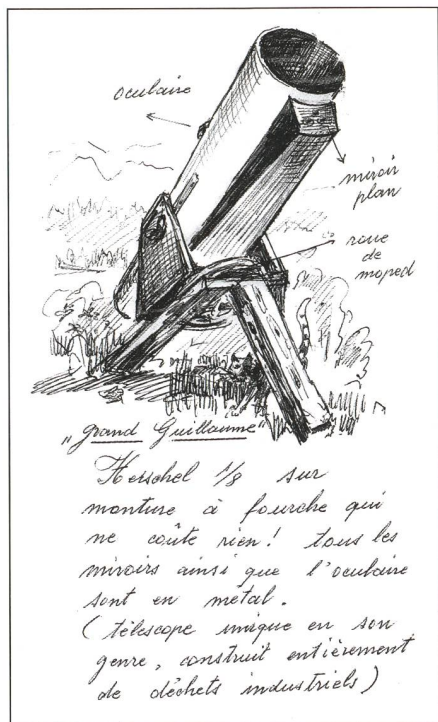 oculaire
miroir
plan
roue
de
moped
„Grand Guillaume"
Herschel 1/8 sur
monture à fourche qui
ne coûte rien! tous les
miroirs ainsi que l'oculaire
sont en métal.
(télescope unique en son
genre, construit entièrement
de déchets industriels)